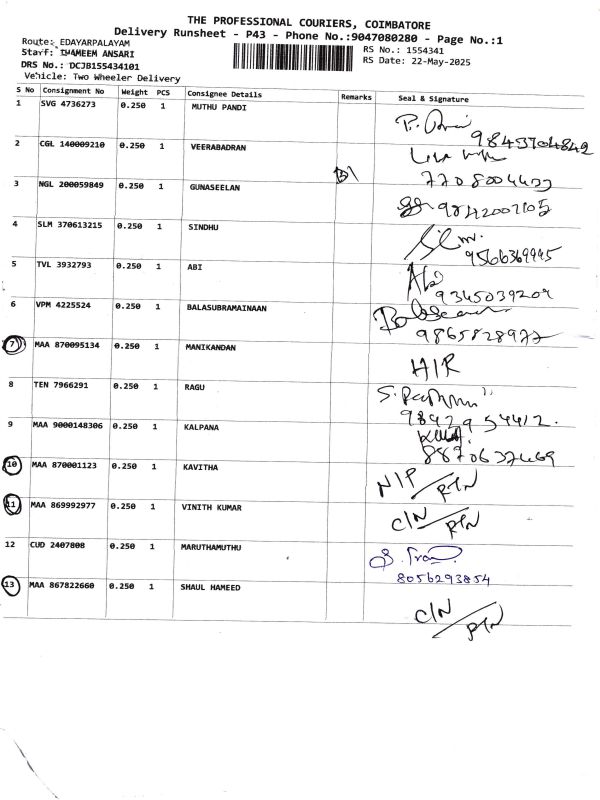 THE PROFESSIONAL COURIERS, COIMBATORE
Delivery Runsheet - P43 - Phone No.:9047080280 - Page No.:1
Route: EDAYARPALAYAM
Staff: THAMEEM ANSARI
DRS No.: DCJB155434101
Vehicle: Two Wheeler Delivery
RS No.: 1554341
RS Date: 22-May-2025
S No Consignment No Weight PCS Consignee Details Remarks Seal & Signature
1 SVG 4736273 0.250 1 MUTHU PANDI
9843704842
2 CGL 140009210 0.250 1 VEERABADRAN
3 NGL 200059849 0.250 1 GUNASEELAN
4 SLM 370613215 0.250 1 SINDHU
9566369995
5 TVL 3932793 0.250 1 ABI
Abi
9345039209
6 VPM 4225524 0.250 1 BALASUBRAMAINAAN
9865828977
7 MAA 870095134 0.250 1 MANIKANDAN
H/R
8 TEN 7966291 0.250 1 RAGU
9842954412.
9 MAA 9000148306 0.250 1 KALPANA
8870637469
10 MAA 870001123 0.250 1 KAVITHA
N/P / RTN
11 MAA 869992977 0.250 1 VINITH KUMAR
C/N / RTN
12 CUD 2407808 0.250 1 MARUTHAMUTHU
8056293854
13 MAA 867822660 0.250 1 SHAUL HAMEED
C/N / RTN